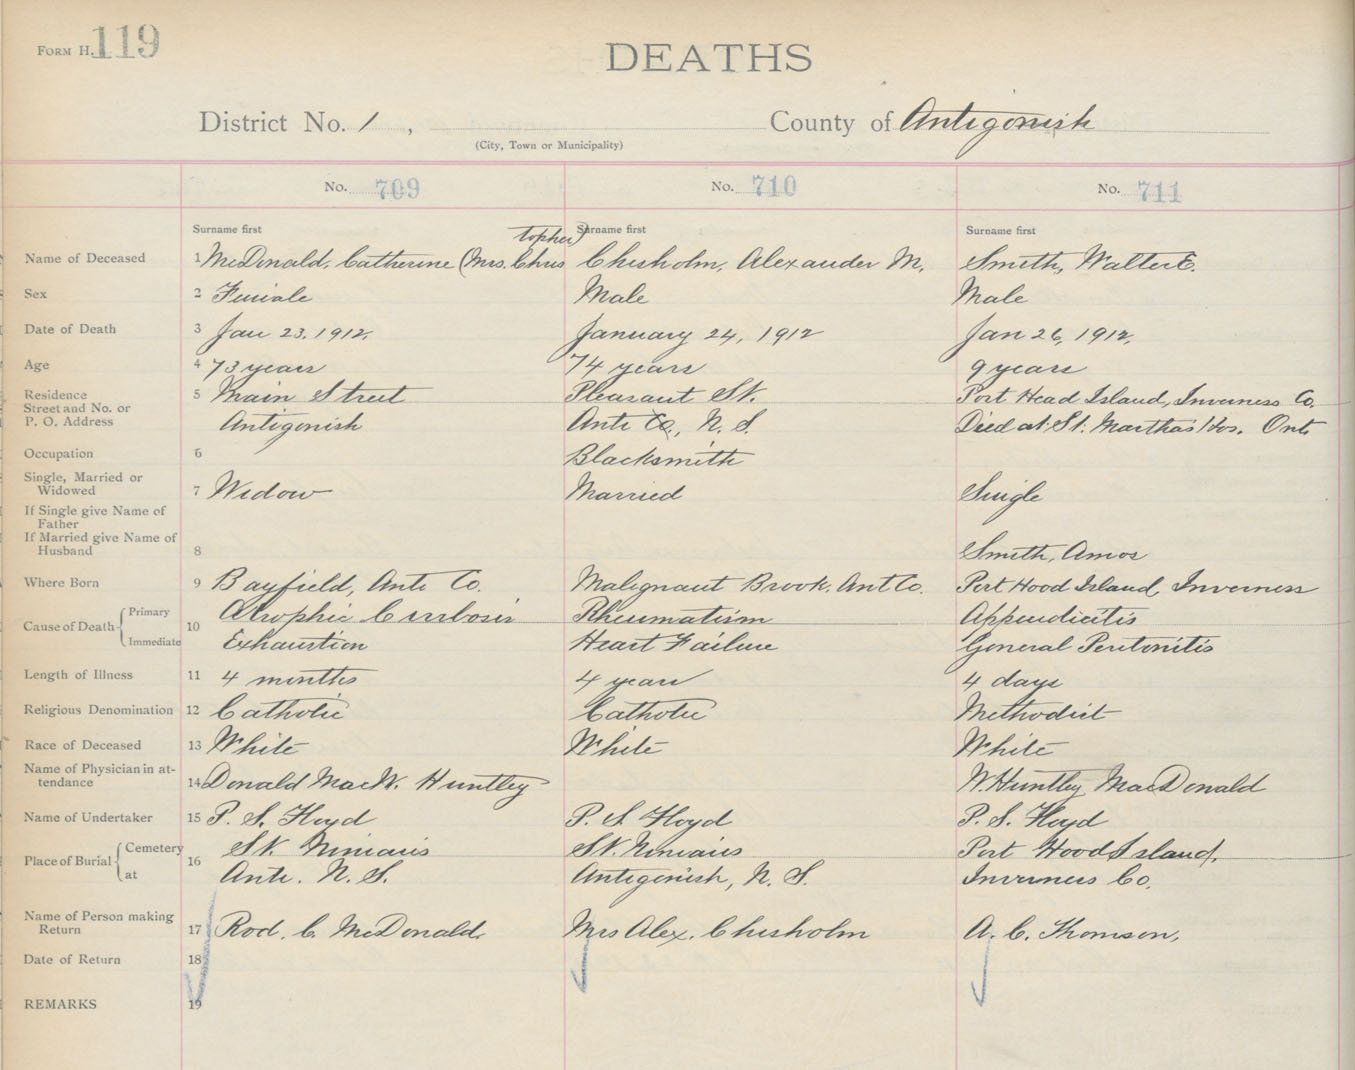 FORM H. 119
DEATHS
District No. 1, County of Antigonish
(City, Town or Municipality)
No. 709 No. 710 No. 711
Surname first Surname first Surname first
topher)
Name of Deceased 1 McDonald, Catherine (Mrs. Chris Chisholm, Alexander M. Smith, Walter E.
Sex 2 Female Male Male
Date of Death 3 Jan 23, 1912. January 24, 1912 Jan 26, 1912.
Age 4 73 years 74 years 9 years
Residence 5 Main Street Pleasant St. Port Head Island, Inverness Co.
Street and No. or
P. O. Address Antigonish Anti Co., N. S. Died at St. Martha's Hos. Ant.
Occupation 6 Blacksmith
Single, Married or
Widowed 7 Widow Married Single
If Single give Name of
Father
If Married give Name of
Husband 8 Smith, Amos
Where Born 9 Bayfield, Ant. Co. Malignant Brook, Ant Co. Port Hood Island, Inverness
Cause of Death { Primary 10 Atrophic Cirrhosis Rheumatism Appendicitis
Immediate Exhaustion Heart Failure General Peritonitis
Length of Illness 11 4 months 4 years 4 days
Religious Denomination 12 Catholic Catholic Methodist
Race of Deceased 13 White White White
Name of Physician in at-
tendance 14 Donald MacW. Huntley W. Huntley MacDonald
Name of Undertaker 15 P. S. Floyd P. S. Floyd P. S. Floyd
Place of Burial { Cemetery 16 St. Ninians St. Ninians Port Hood Island,
at Ant. N. S. Antigonish, N. S. Inverness Co.
Name of Person making
Return 17 Rod. C. McDonald. Mrs Alex. Chisholm A. C. Thomson,
Date of Return 18
REMARKS 19